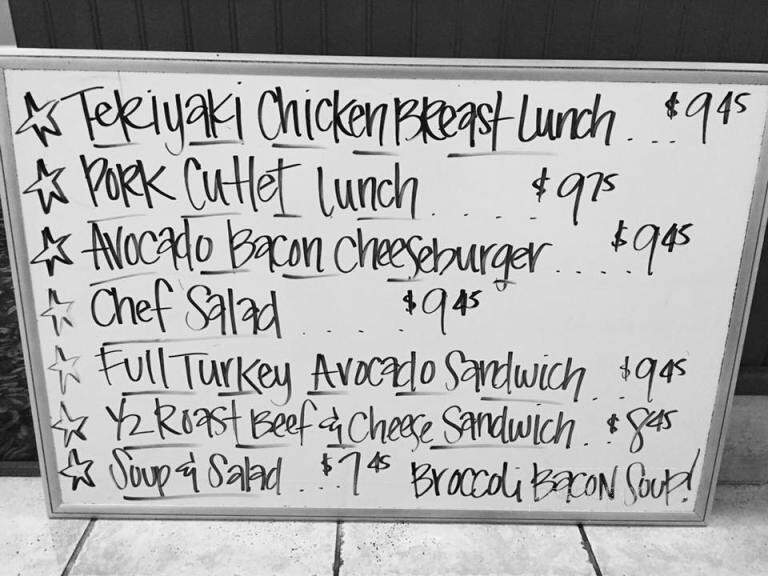 ☆ Teriyaki Chicken Breast Lunch ... $9.45
☆ Pork Cutlet Lunch .... $9.75
☆ Avocado Bacon Cheeseburger .... $9.45
☆ Chef Salad .... $9.45
☆ Full Turkey Avocado Sandwich . $9.45
☆ 1/2 Roast Beef & Cheese Sandwich . $8.45
☆ Soup & Salad ... $7.45 Broccoli Bacon Soup!